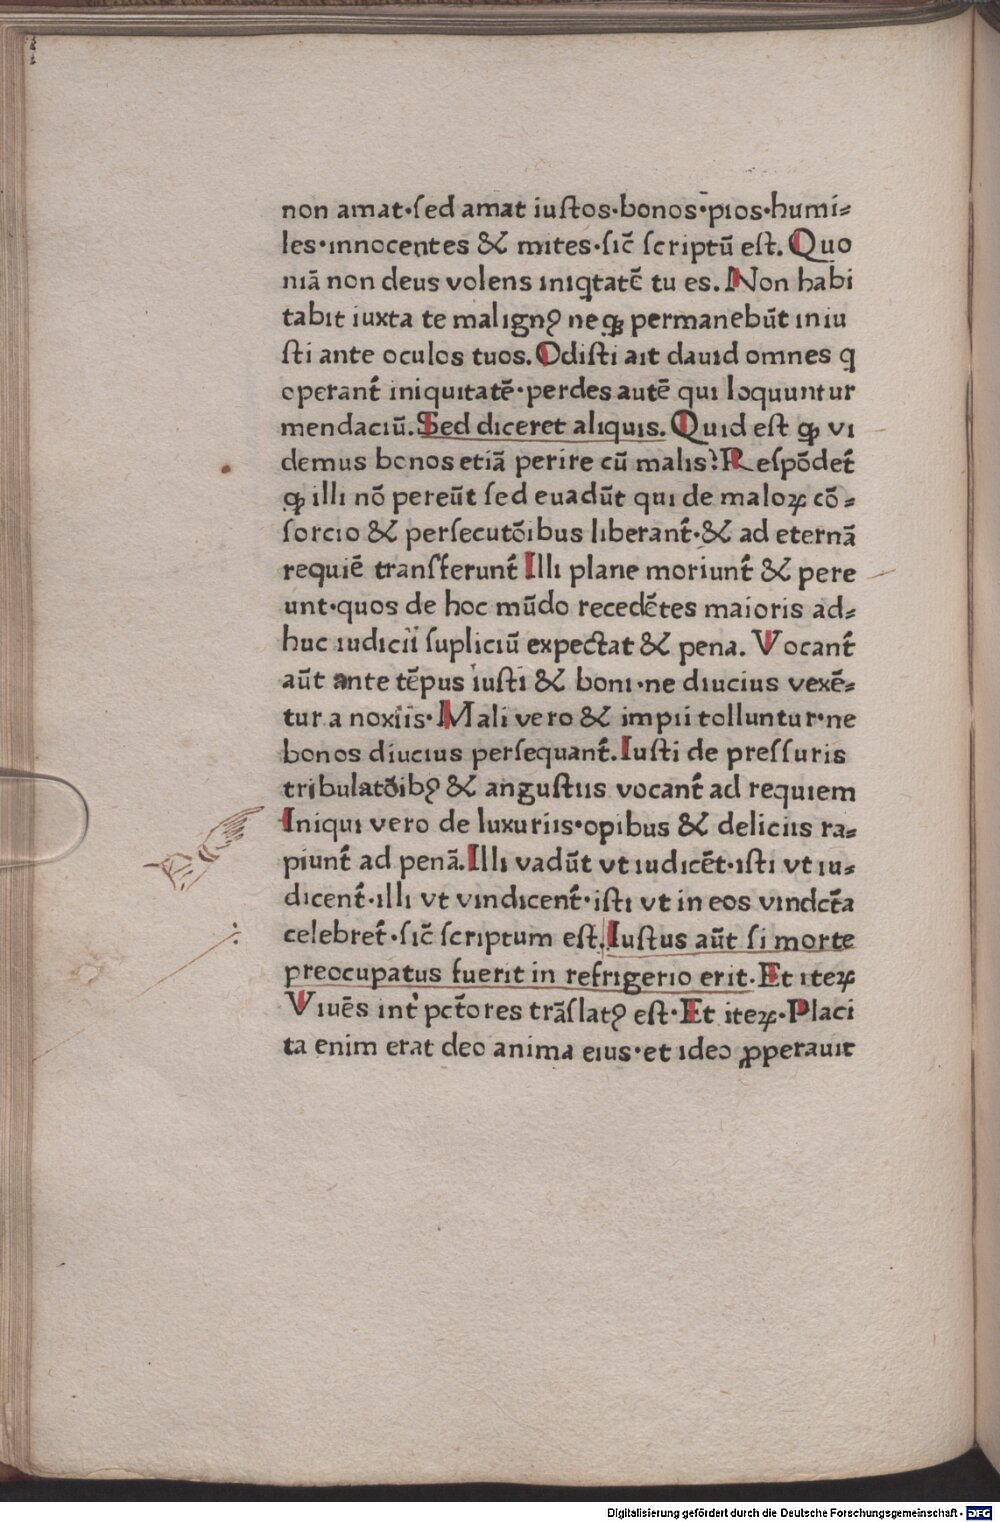 non amat·sed amat iustos·bonos·pios·humi⸗
les·innocentes & mites·sic̄ scriptū est. Quo
niā non deus volens iniq̄tatē tu es. Non habi
tabit iuxta te malignꝯ neqꝫ permanebūt iniu
sti ante oculos tuos. Odisti ait dauid omnes q
operant̄ iniquitatē·perdes autē qui loquuntur
mendaciū. Sed diceret aliquis. Quid est qꝫ vi
demus bonos etiā perire cū malis? Respōdet̄
qꝫ illi nō pereūt sed euadūt qui de maloꝝ cō⸗
sorcio & persecutōibus liberant̄·& ad eternā
requiē transferunt̄ Illi plane moriunt̄ & pere
unt·quos de hoc mūdo recedētes maioris ad⸗
huc iudicii supliciū expectat & pena. Vocant̄
aūt ante tēpus iusti & boni·ne diucius vexē⸗
tur a noxiis· Mali vero & impii tolluntur·ne
bonos diucius persequant̄. Iusti de pressuris
tribulatōibꝯ & angustiis vocant̄ ad requiem
Iniqui vero de luxuriis·opibus & deliciis ra⸗
piunt̄ ad penā. Illi vadūt vt iudicēt·isti vt iu⸗
dicent̄·illi vt vindicent̄·isti vt in eos vindc̄ta
celebret̄·sic̄ scriptum est. Iustus aūt si morte
preocupatus fuerit in refrigerio erit. Et iteꝝ
Viuēs int̓ pct̄ores trāslatꝯ est· Et iteꝝ· Placi
ta enim erat deo anima eius·et ideo ꝓperauit
Digitalisierung gefördert durch die Deutsche Forschungsgemeinschaft - DFG